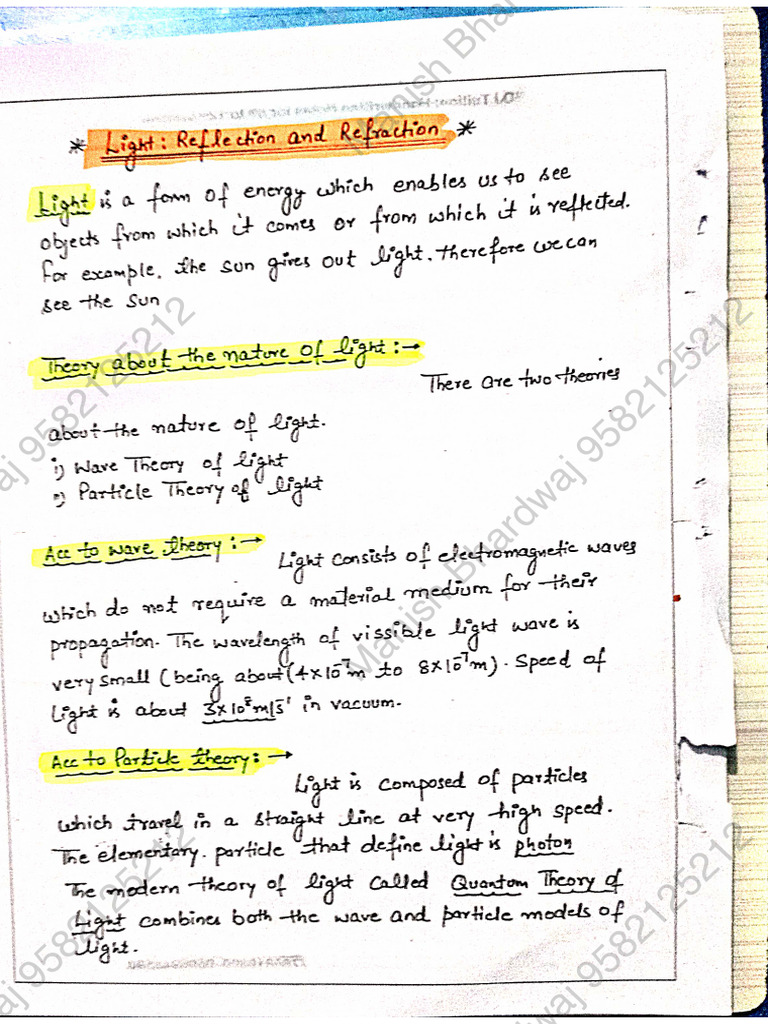 * Light: Reflection and Refraction *
Light is a form of energy which enables us to see
objects from which it comes or from which it is reflected.
for example, the sun gives out light. therefore we can
see the sun
Theory about the nature of light :→
There are two theories
about the nature of light.
i) Wave Theory of light
Particle Theory of light
Acc to wave theory :→
Light consists of electromagnetic waves
which do not require a material medium for their
propagation. The wavelength of vissible light wave is
very small (being about (4×10⁻⁷m to 8×10⁻⁷m). Speed of
light is about 3×10⁸m/s¹ in vacuum.
Acc to Particle theory: →
Light is composed of particles
which travel in a straight line at very high speed.
The elementary. particle that define light is photon
The modern theory of light called Quantom Theory of
Light combines both the wave and particle models of
light.
Manish Bhardwaj 9582125212